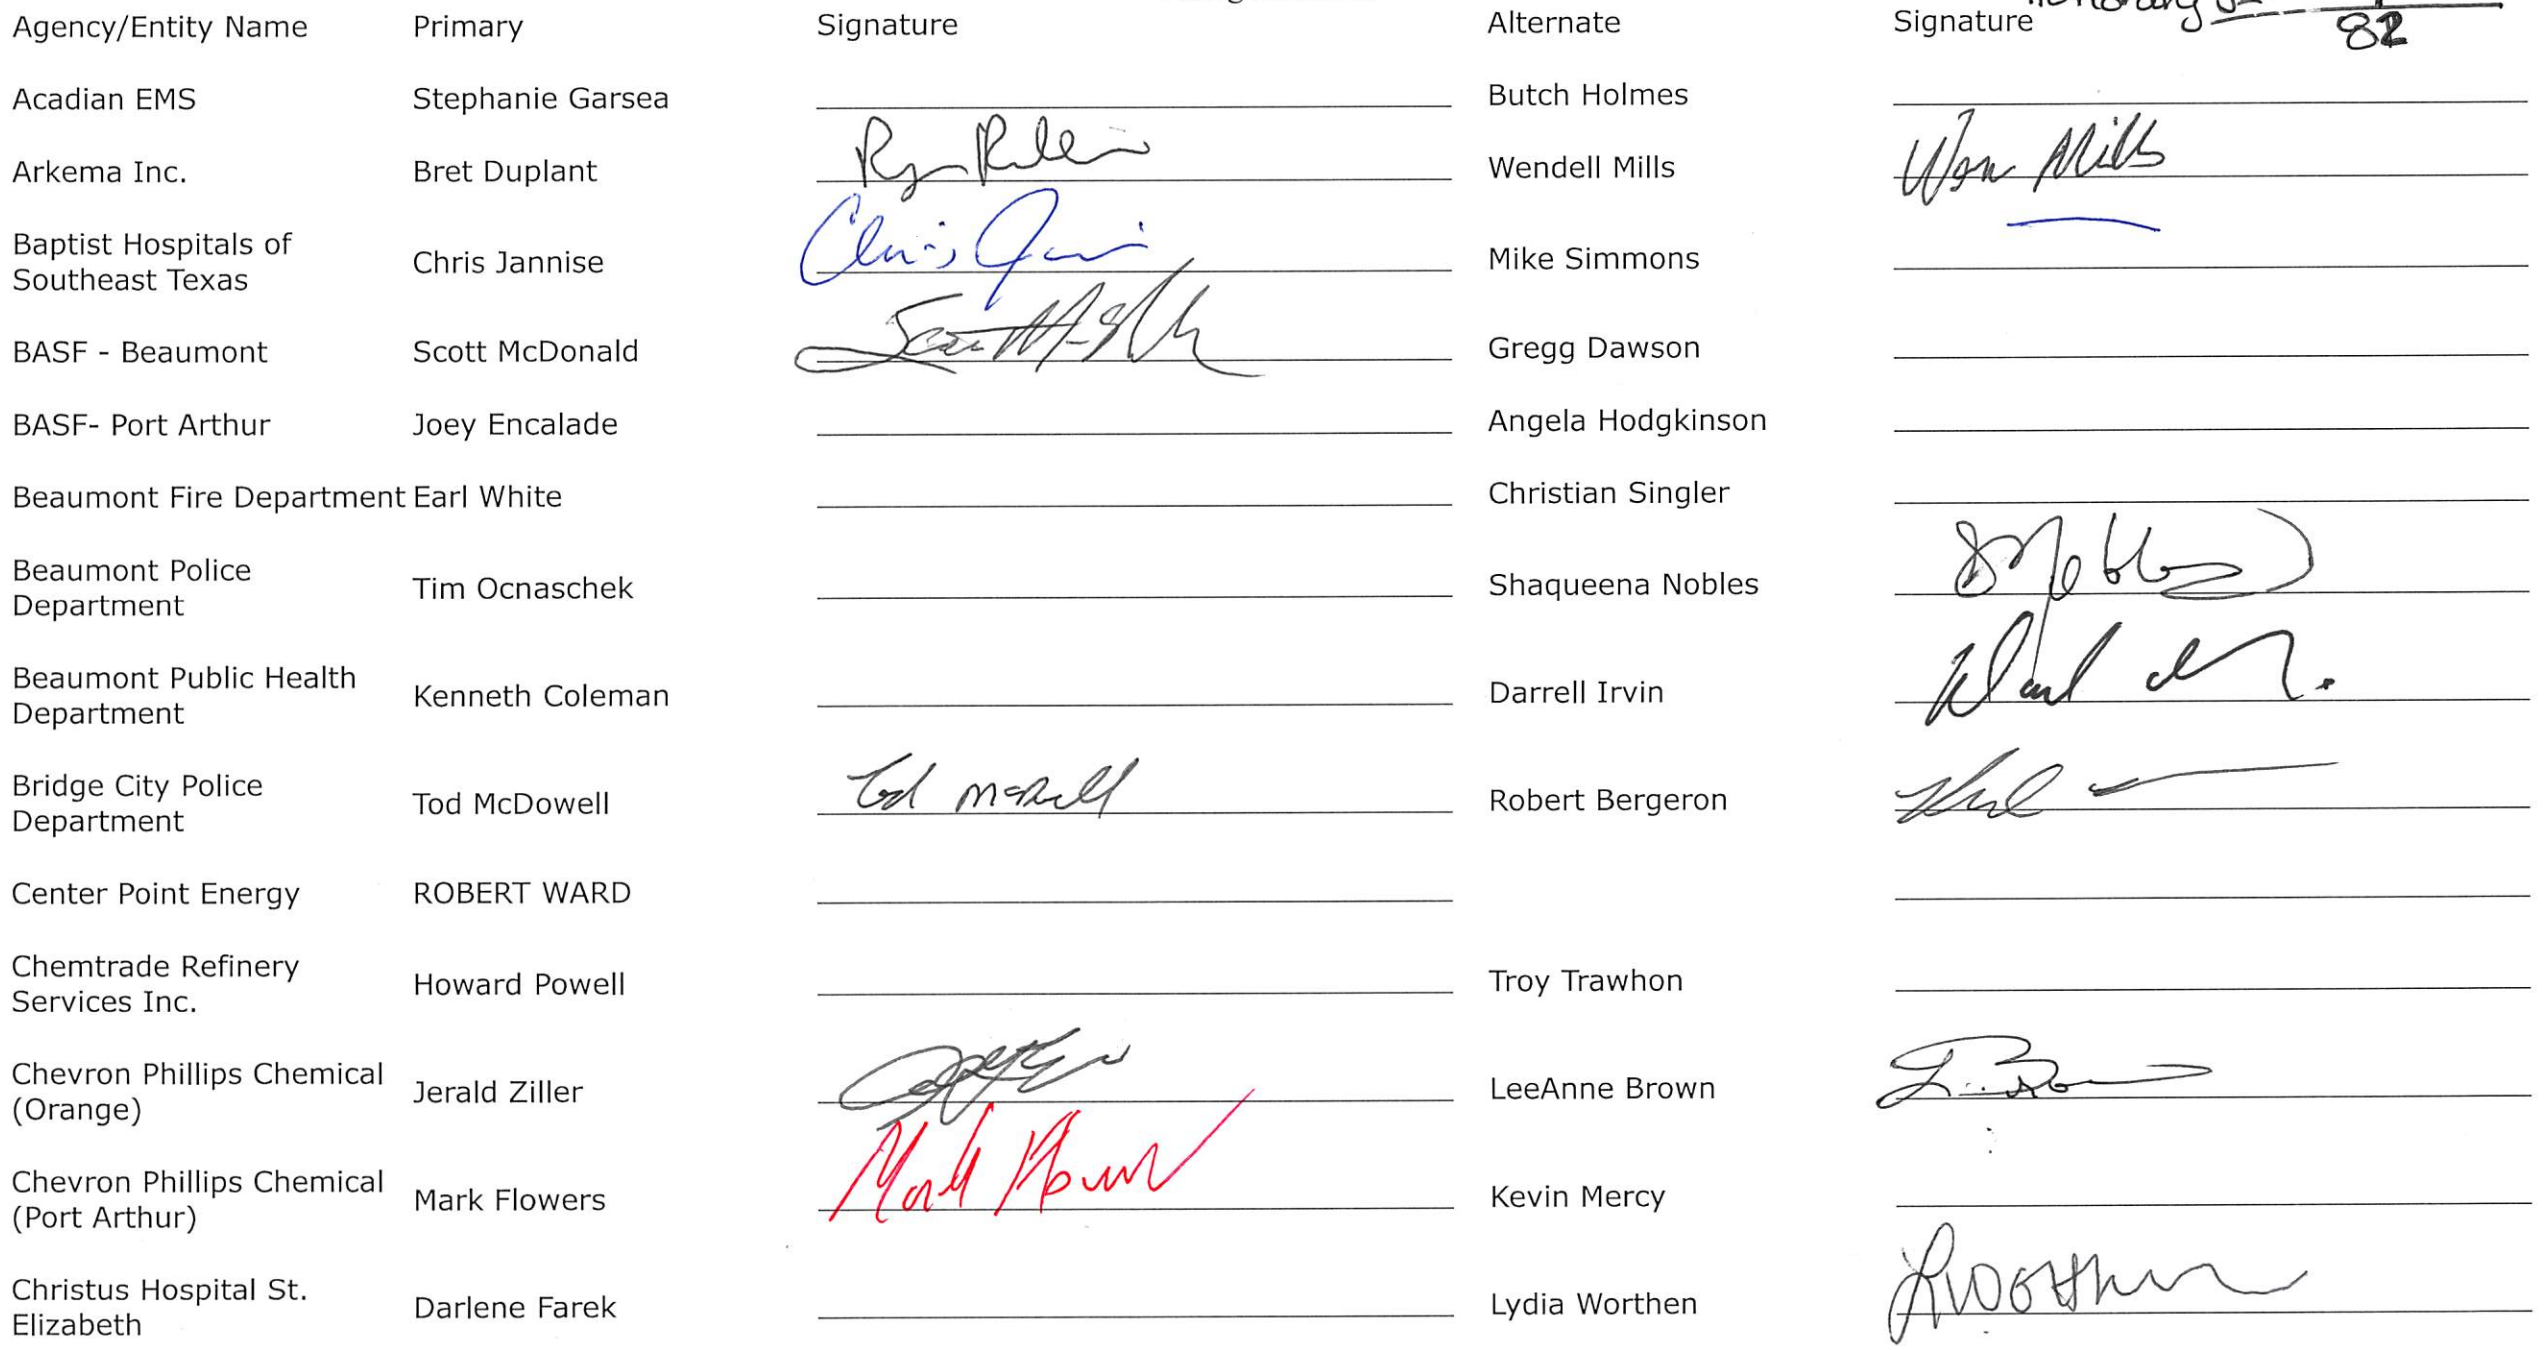 Agency/Entity Name Primary Signature Alternate Signature
82
Acadian EMS Stephanie Garsea Butch Holmes
Arkema Inc. Bret Duplant Wendell Mills Mills
Baptist Hospitals of
Southeast Texas Chris Jannise Chris Mike Simmons
BASF - Beaumont Scott McDonald Scott Gregg Dawson
BASF- Port Arthur Joey Encalade Angela Hodgkinson
Beaumont Fire Department Earl White Christian Singler
Beaumont Police
Department Tim Ocnaschek Shaqueena Nobles
Beaumont Public Health
Department Kenneth Coleman Darrell Irvin
Bridge City Police
Department Tod McDowell Tod McDowell Robert Bergeron
Center Point Energy ROBERT WARD
Chemtrade Refinery
Services Inc. Howard Powell Troy Trawhon
Chevron Phillips Chemical
(Orange) Jerald Ziller LeeAnne Brown
Chevron Phillips Chemical
(Port Arthur) Mark Flowers Mark Flowers Kevin Mercy
Christus Hospital St.
Elizabeth Darlene Farek Lydia Worthen LWorthen